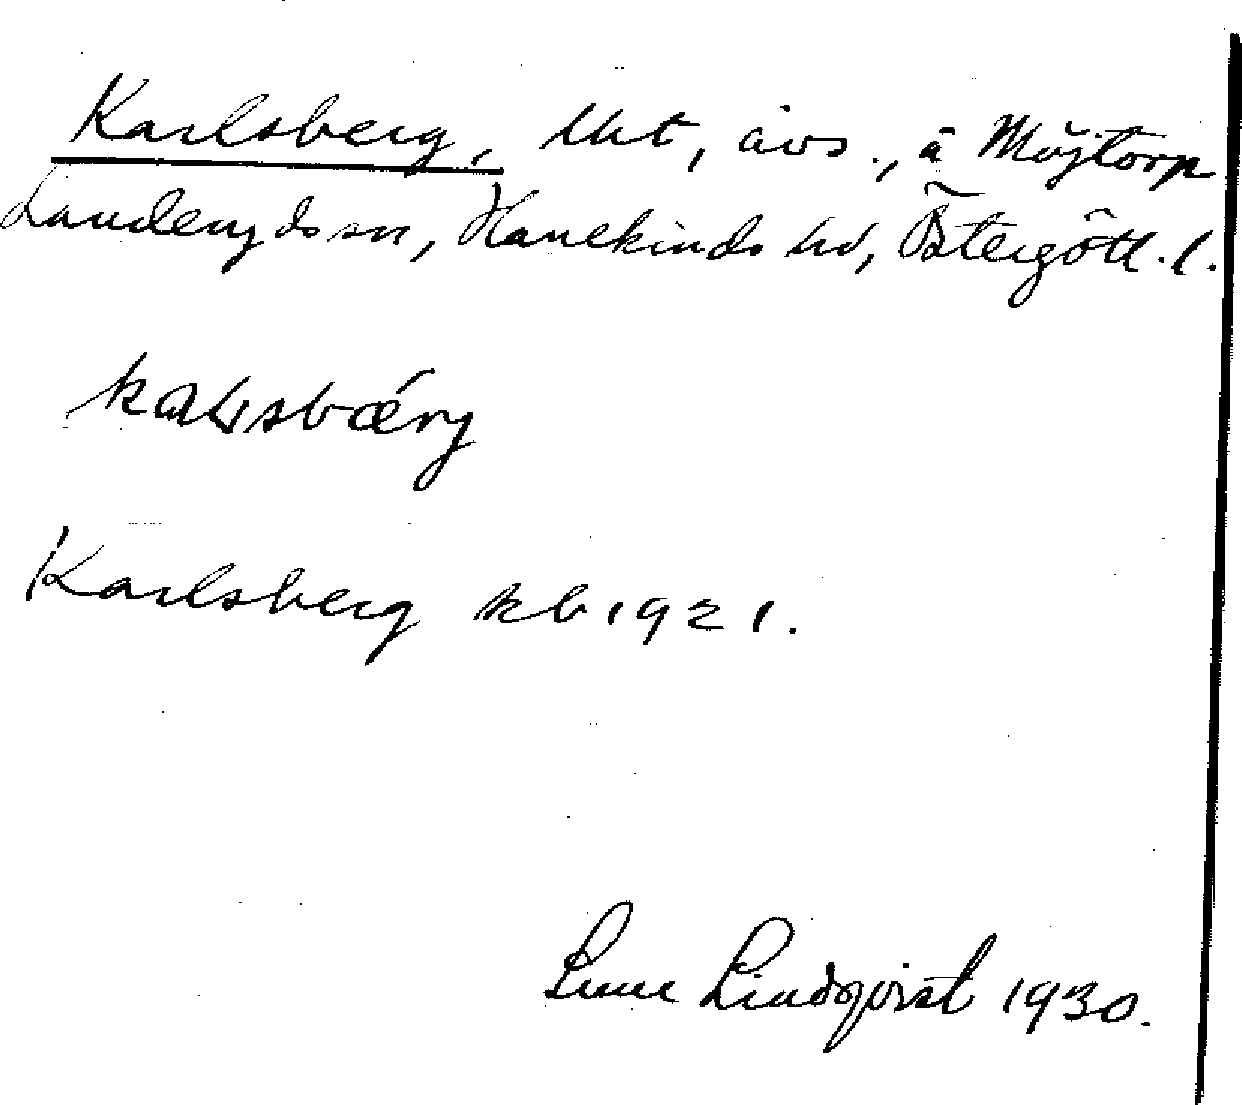 Karlsberg, lht, avs., å Möjtorp
Landeryds sn, Hanekinds hd, Östergötl. l.
Karlsberg kb 1921.
Sune Lindqvist 1930.